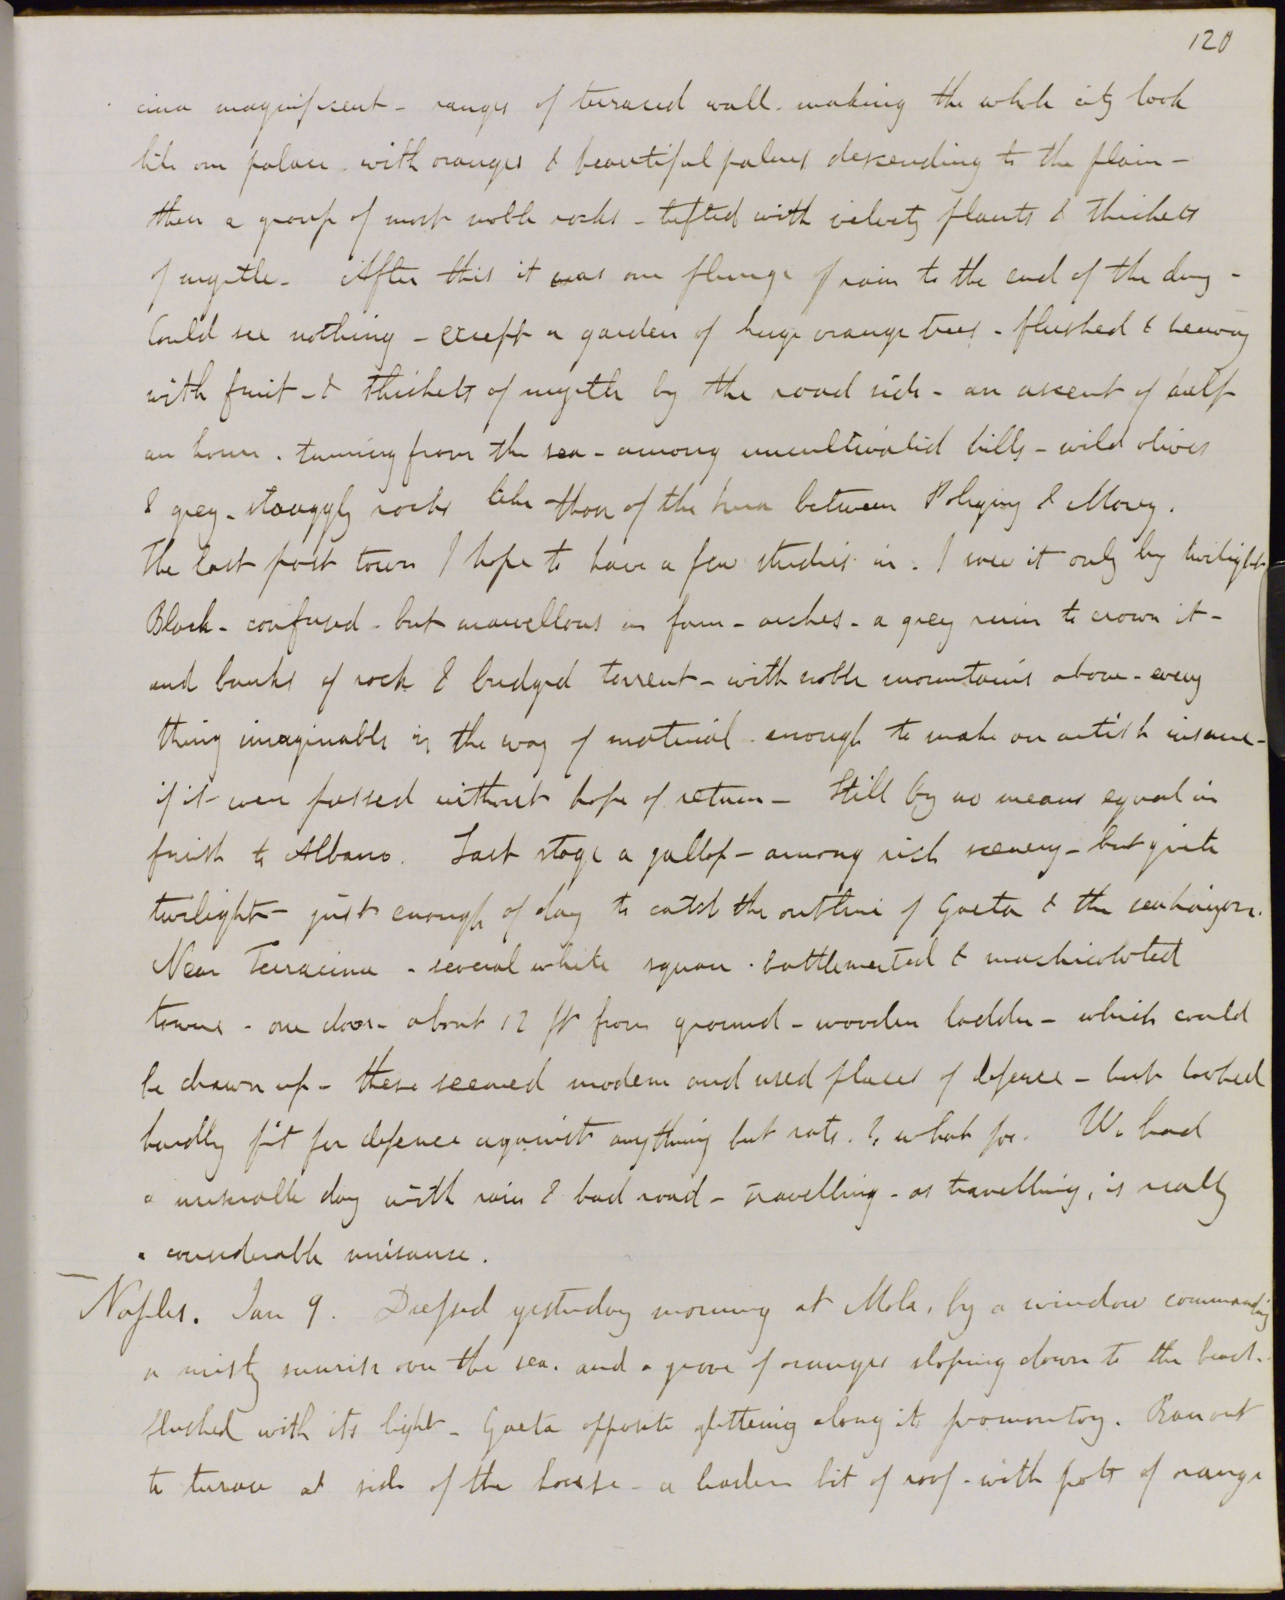 120
cina magnificent - ranges of terraced wall. making the whole city look
like one palace. with oranges & beautiful palms descending to the plain -
then a group of most noble rocks - tufted with velvety plants & thickets
of myrtle - After this it was one plunge of rain to the end of the day -
Could see nothing - except a garden of huge orange trees - flushed & heavy
with fruit - & thickets of myrtle by the road side - an ascent of half
an hour. turning from the sea - among uncultivated hills - wild olives
& grey - straggly rocks like those of the Jura between Poligny & Morez.
The last post town I hope to have a few studies in. I saw it only by twilight
Black - confused - but marvellous in form - arches - a grey ruin to crown it -
and banks of rock & bridged torrent - with noble mountains above - every
thing imaginable in the way of material. enough to make an artist insane -
if it were passed without hope of return - Still by no means equal in
finish to Albano. Last stage a gallop - among rich scenery - but quite
twilight - just enough of day to catch the outline of Gaeta & the sea horizon.
Near Terracina - several white square. battlemented & machicolated
towers - one door - about 12 ft from ground - wooden ladder - which could
be drawn up - these seemed modern and used places of defence - but looked
hardly fit for defence against anything but rats. & what for. We had
a miserable day with rain & bad road - travelling - as travelling, is really
a considerable nuisance.
Naples. Jan 9. Dressed yesterday morning at Mola, by a window commanding
a misty sunrise over the sea. and a grove of oranges sloping down to the beach.
flushed with its light - Gaeta opposite glittering along its promontory. Ran out
to terrace at side of the house - a leaden bit of roof - with pots of orange